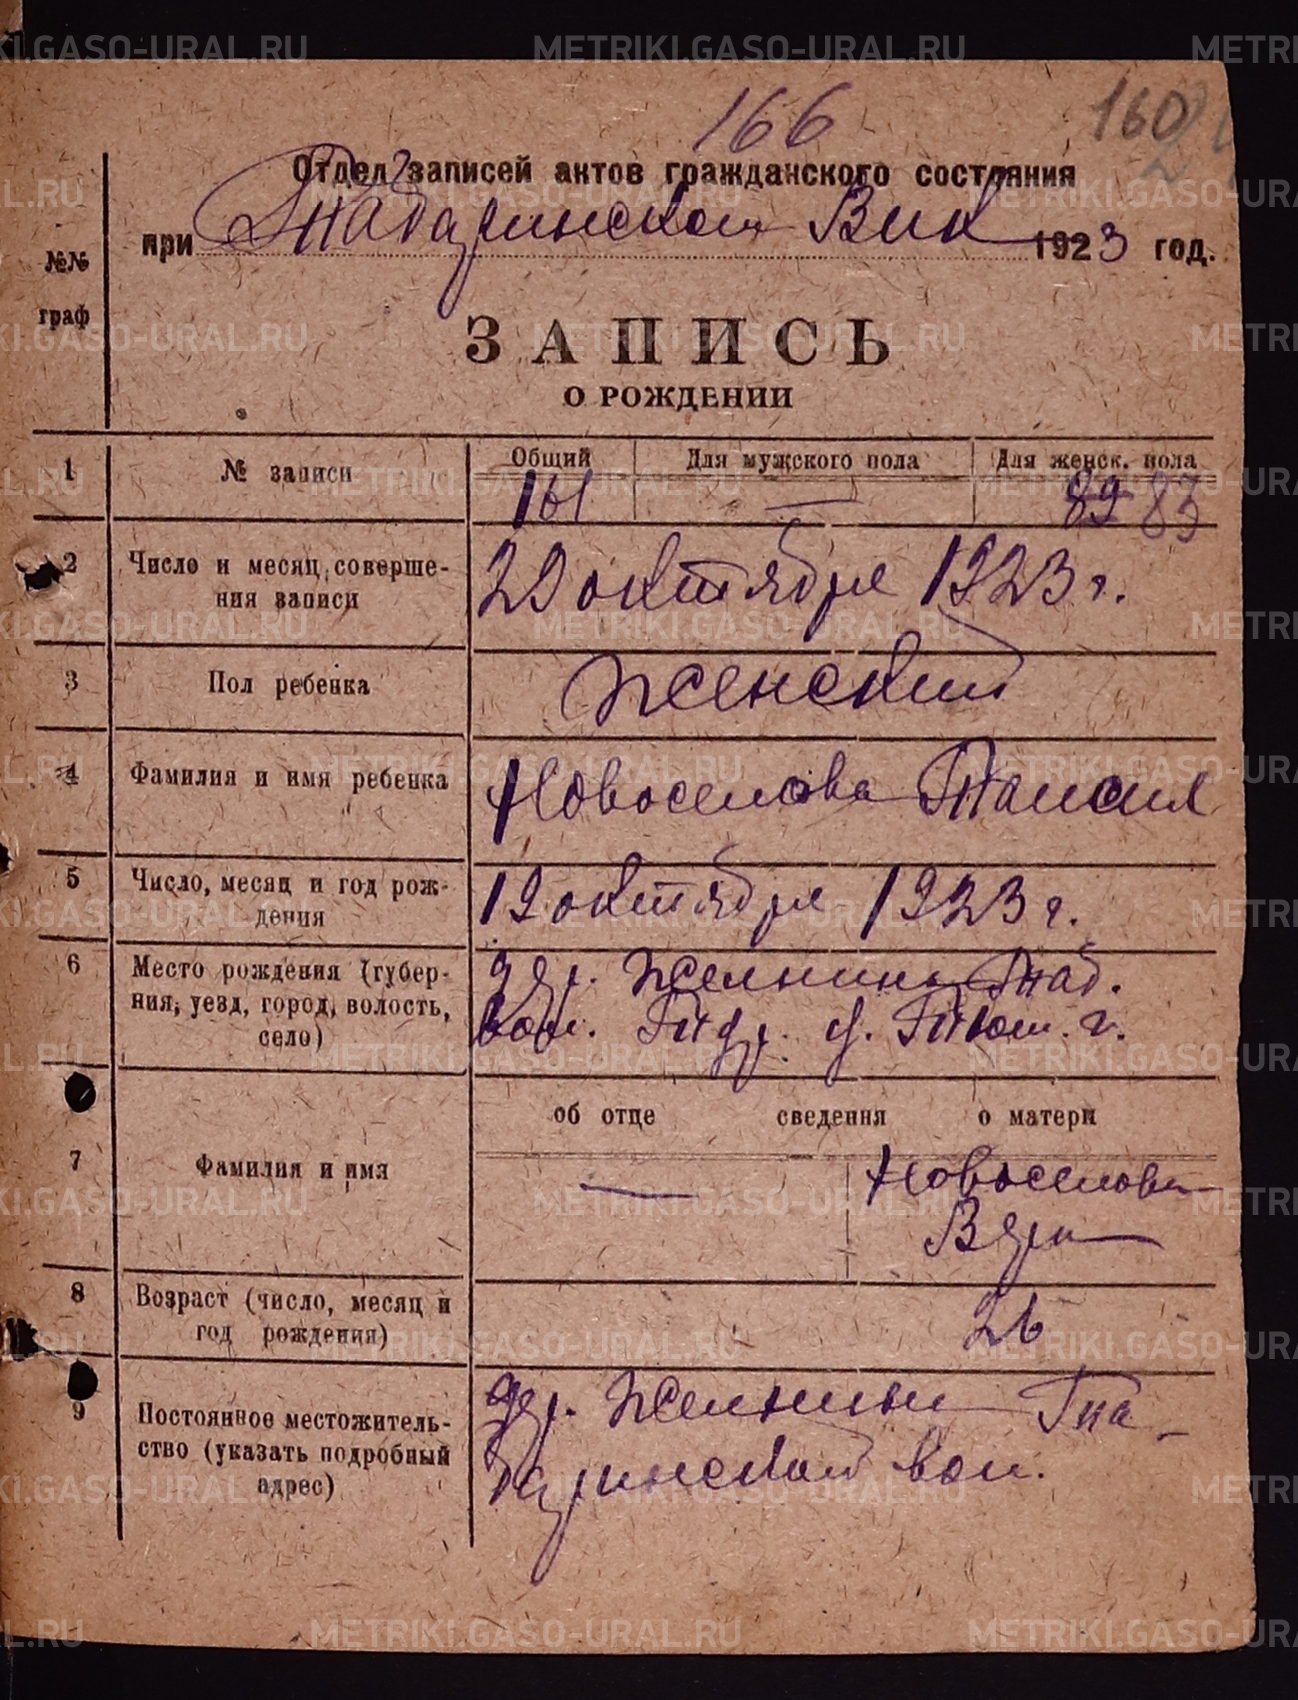 166
160
Отдел записей актов гражданского состояния
при Табаринском Вик 1923 год.
№№
граф
ЗАПИСЬ
О РОЖДЕНИИ
Общий Для мужского пола Для женск. пола
1 № записи 161 — 89 83
2 Число и месяц соверше-
ния записи 29 октября 1923 г.
3 Пол ребенка Женский
4 Фамилия и имя ребенка Новоселова Таисия
5 Число, месяц и год рож-
дения 19 октября 1923 г.
6 Место рождения (губер-
ния, уезд, город, волость,
село)
дер. Таб.
вол. у. Тюм. г.
об отце сведения о матери
7 Фамилия и имя — Новоселова
Вера
8 Возраст (число, месяц и
год рождения) 26
9 Постоянное местожитель-
ство (указать подробный
адрес)
дер. Та-
баринской вол.
METRIKI.GASO-URAL.RU